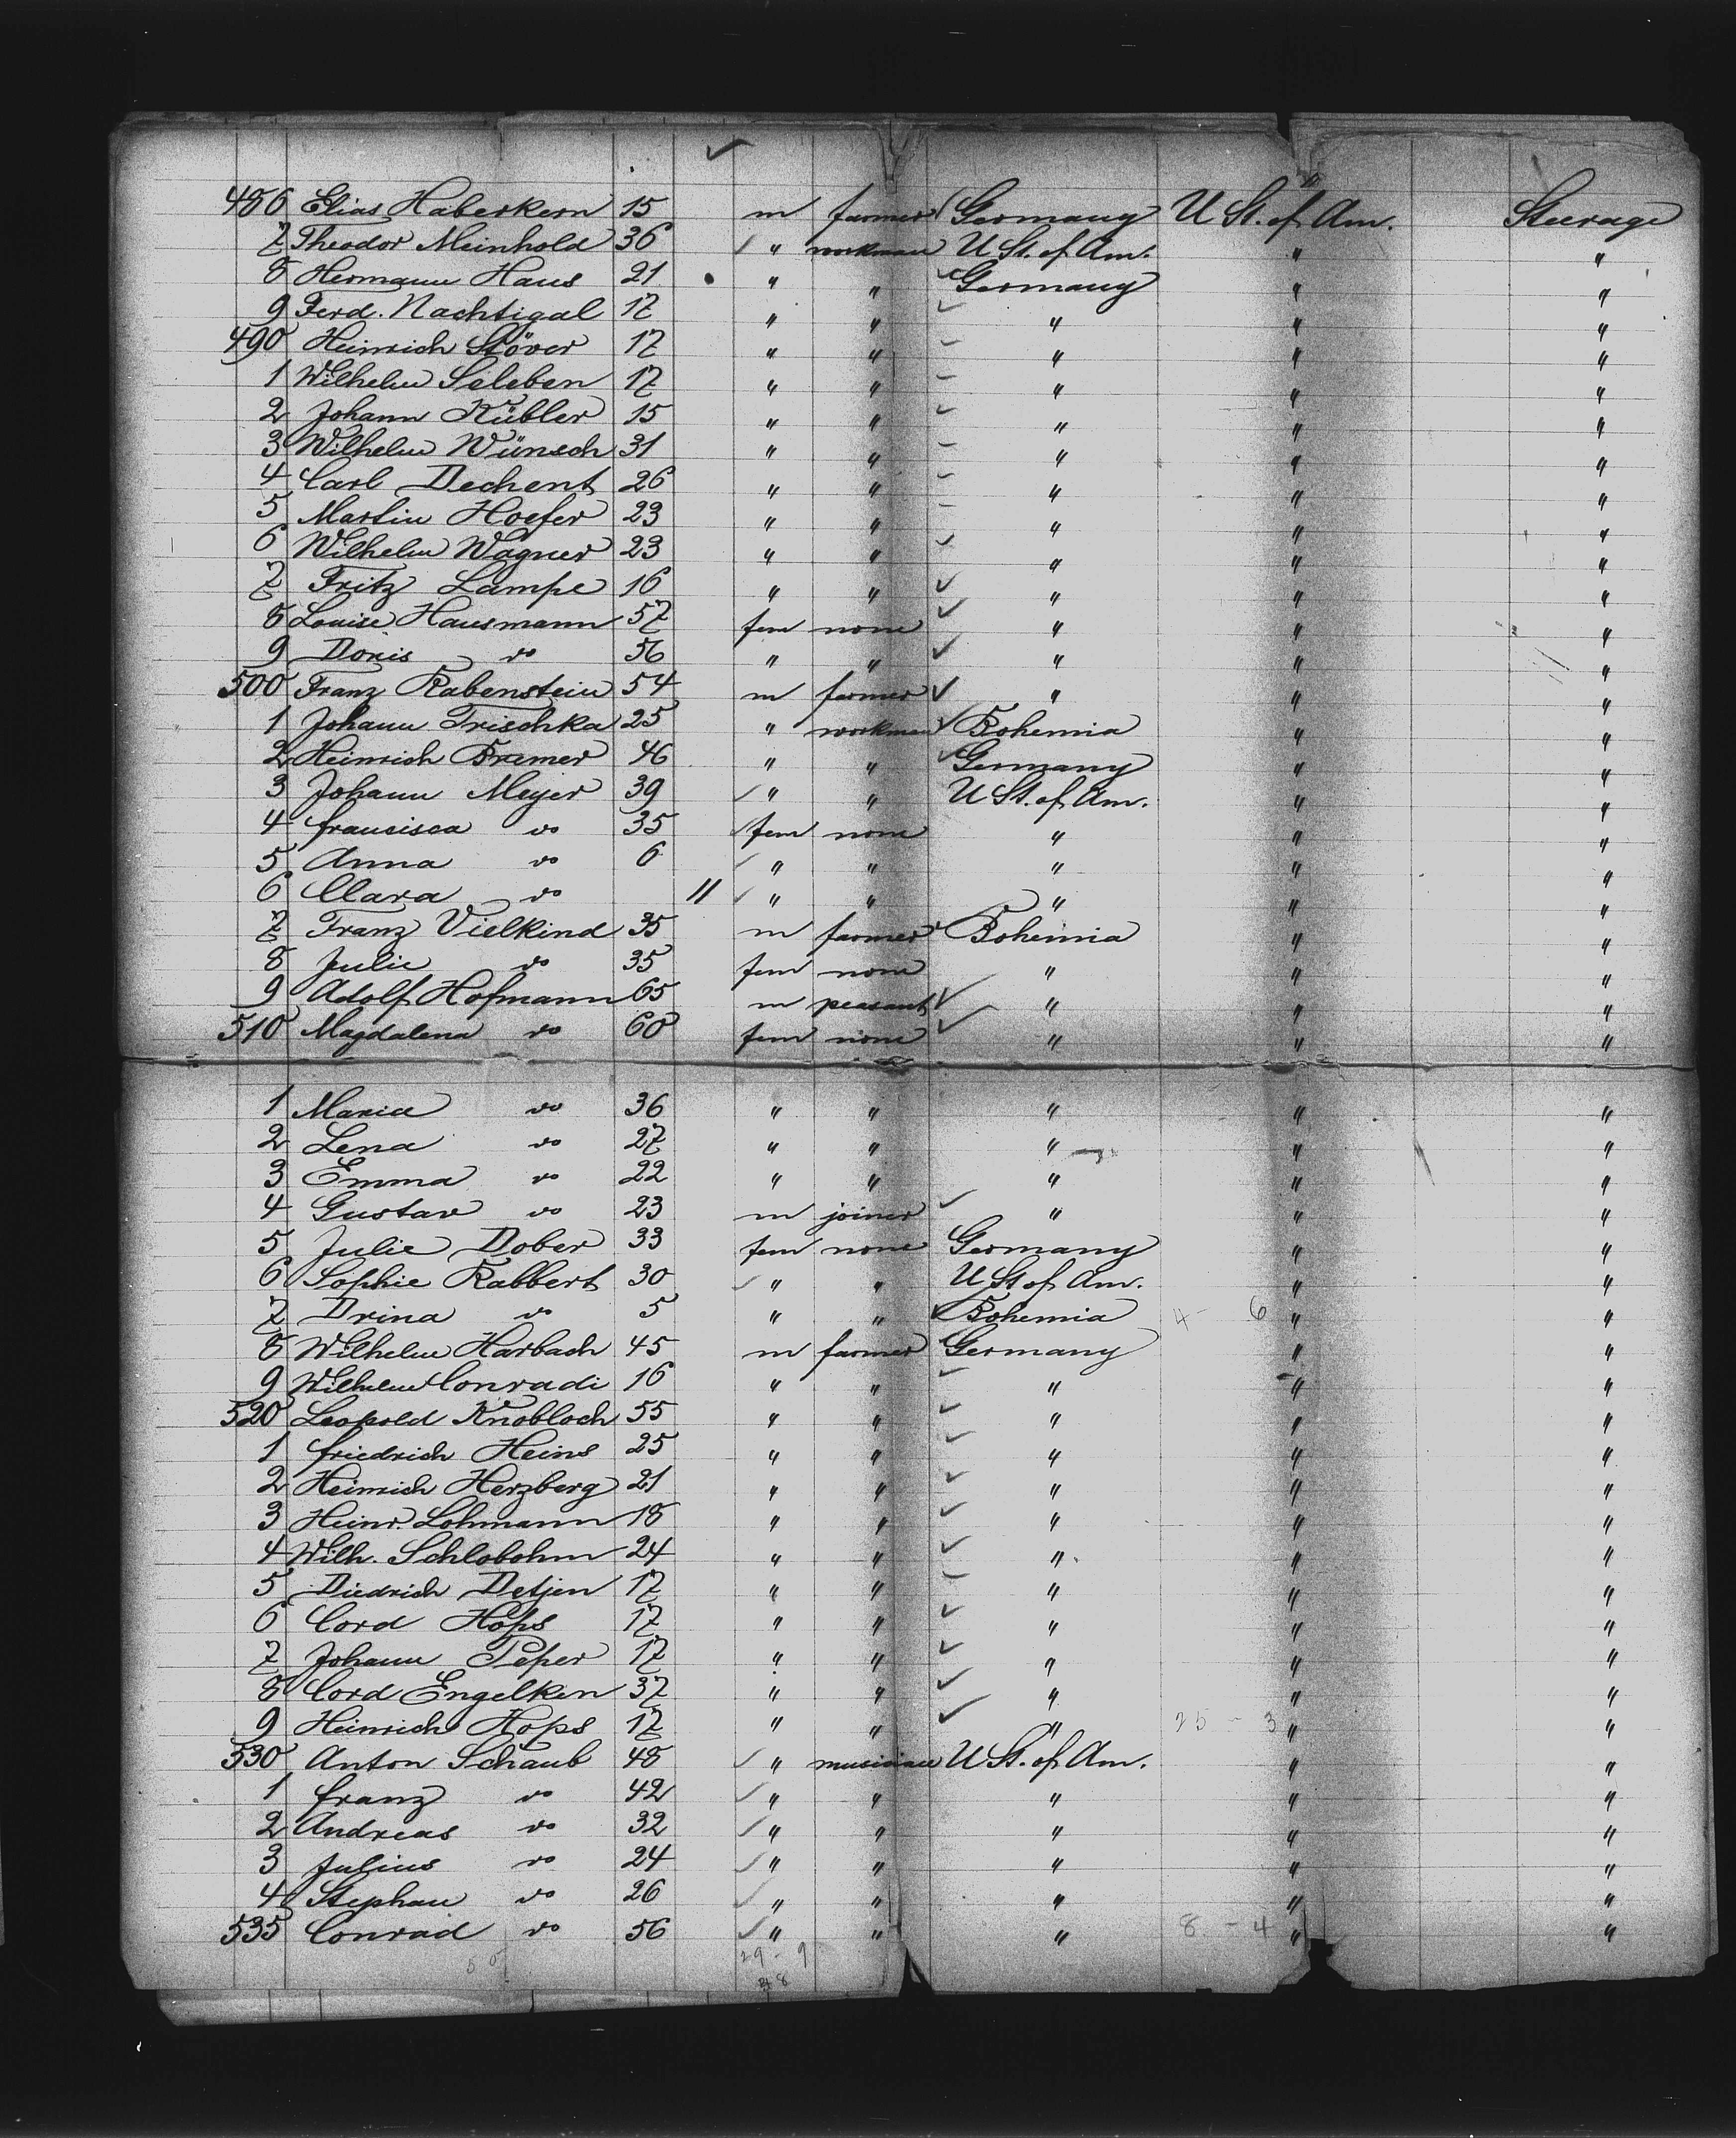 486 Elias Haberkern 15 m farmer Germany U St. of Am. Steerage
7 Theodor Meinhold 36 " workman U St. of Am. " "
8 Hermann Haus 21 " " Germany " "
9 Ferd. Nachtigal 17 " " " " "
490 Heinrich Stöver 17 " " " " "
1 Wilhelm Seleben 17 " " " " "
2 Johann Kübler 15 " " " " "
3 Wilhelm Wünsch 31 " " " " "
4 Carl Dechent 26 " " " " "
5 Martin Hoefer 23 " " " " "
6 Wilhelm Wagner 23 " " " " "
7 Fritz Lampe 16 " " " " "
8 Louise Hausmann 57 fem none " " "
9 Doris do 56 " " " " "
500 Franz Rabenstein 54 m farmer " " "
1 Johann Trischka 25 " workman Bohemia " "
2 Heinrich Bremer 46 " " Germany " "
3 Johann Meyer 39 " " U St. of Am. " "
4 Francisca do 35 fem none " " "
5 Anna do 6 " " " " "
6 Clara do 11 " " " " "
7 Franz Vielkind 35 m farmer Bohemia " "
8 Julie do 35 fem none " " "
9 Adolf Hofmann 65 m peasant " " "
510 Magdalena do 60 fem none " " "
1 Maria do 36 " " " " "
2 Lena do 27 " " " " "
3 Emma do 22 " " " " "
4 Gustav do 23 m joiner " " "
5 Julie Dober 33 fem none Germany " "
6 Sophie Rabbert 30 " " U St. of Am. " "
7 Drina do 5 " " Bohemia 4 - 6 " "
8 Wilhelm Harbach 45 m farmer Germany " "
9 Wilhelm Conradi 16 " " " " "
520 Leopold Knobloch 55 " " " " "
1 Friedrich Heins 25 " " " " "
2 Heinrich Herzberg 21 " " " " "
3 Heinr. Lohmann 18 " " " " "
4 Wilh. Schlobohm 24 " " " " "
5 Diedrich Detjen 17 " " " " "
6 Cord Hops 17 " " " " "
7 Johann Peper 17 " " " " "
8 Cord Engelken 37 " " " " "
9 Heinrich Hops 17 " " " 25 - 3 " "
530 Anton Schaub 48 " musician U St. of Am. " "
1 Franz do 42 " " " " "
2 Andreas do 32 " " " " "
3 Julius do 24 " " " " "
4 Stephan do 26 " " " " "
535 Conrad do 56 " " " 8 - 4 " "
29 - 9